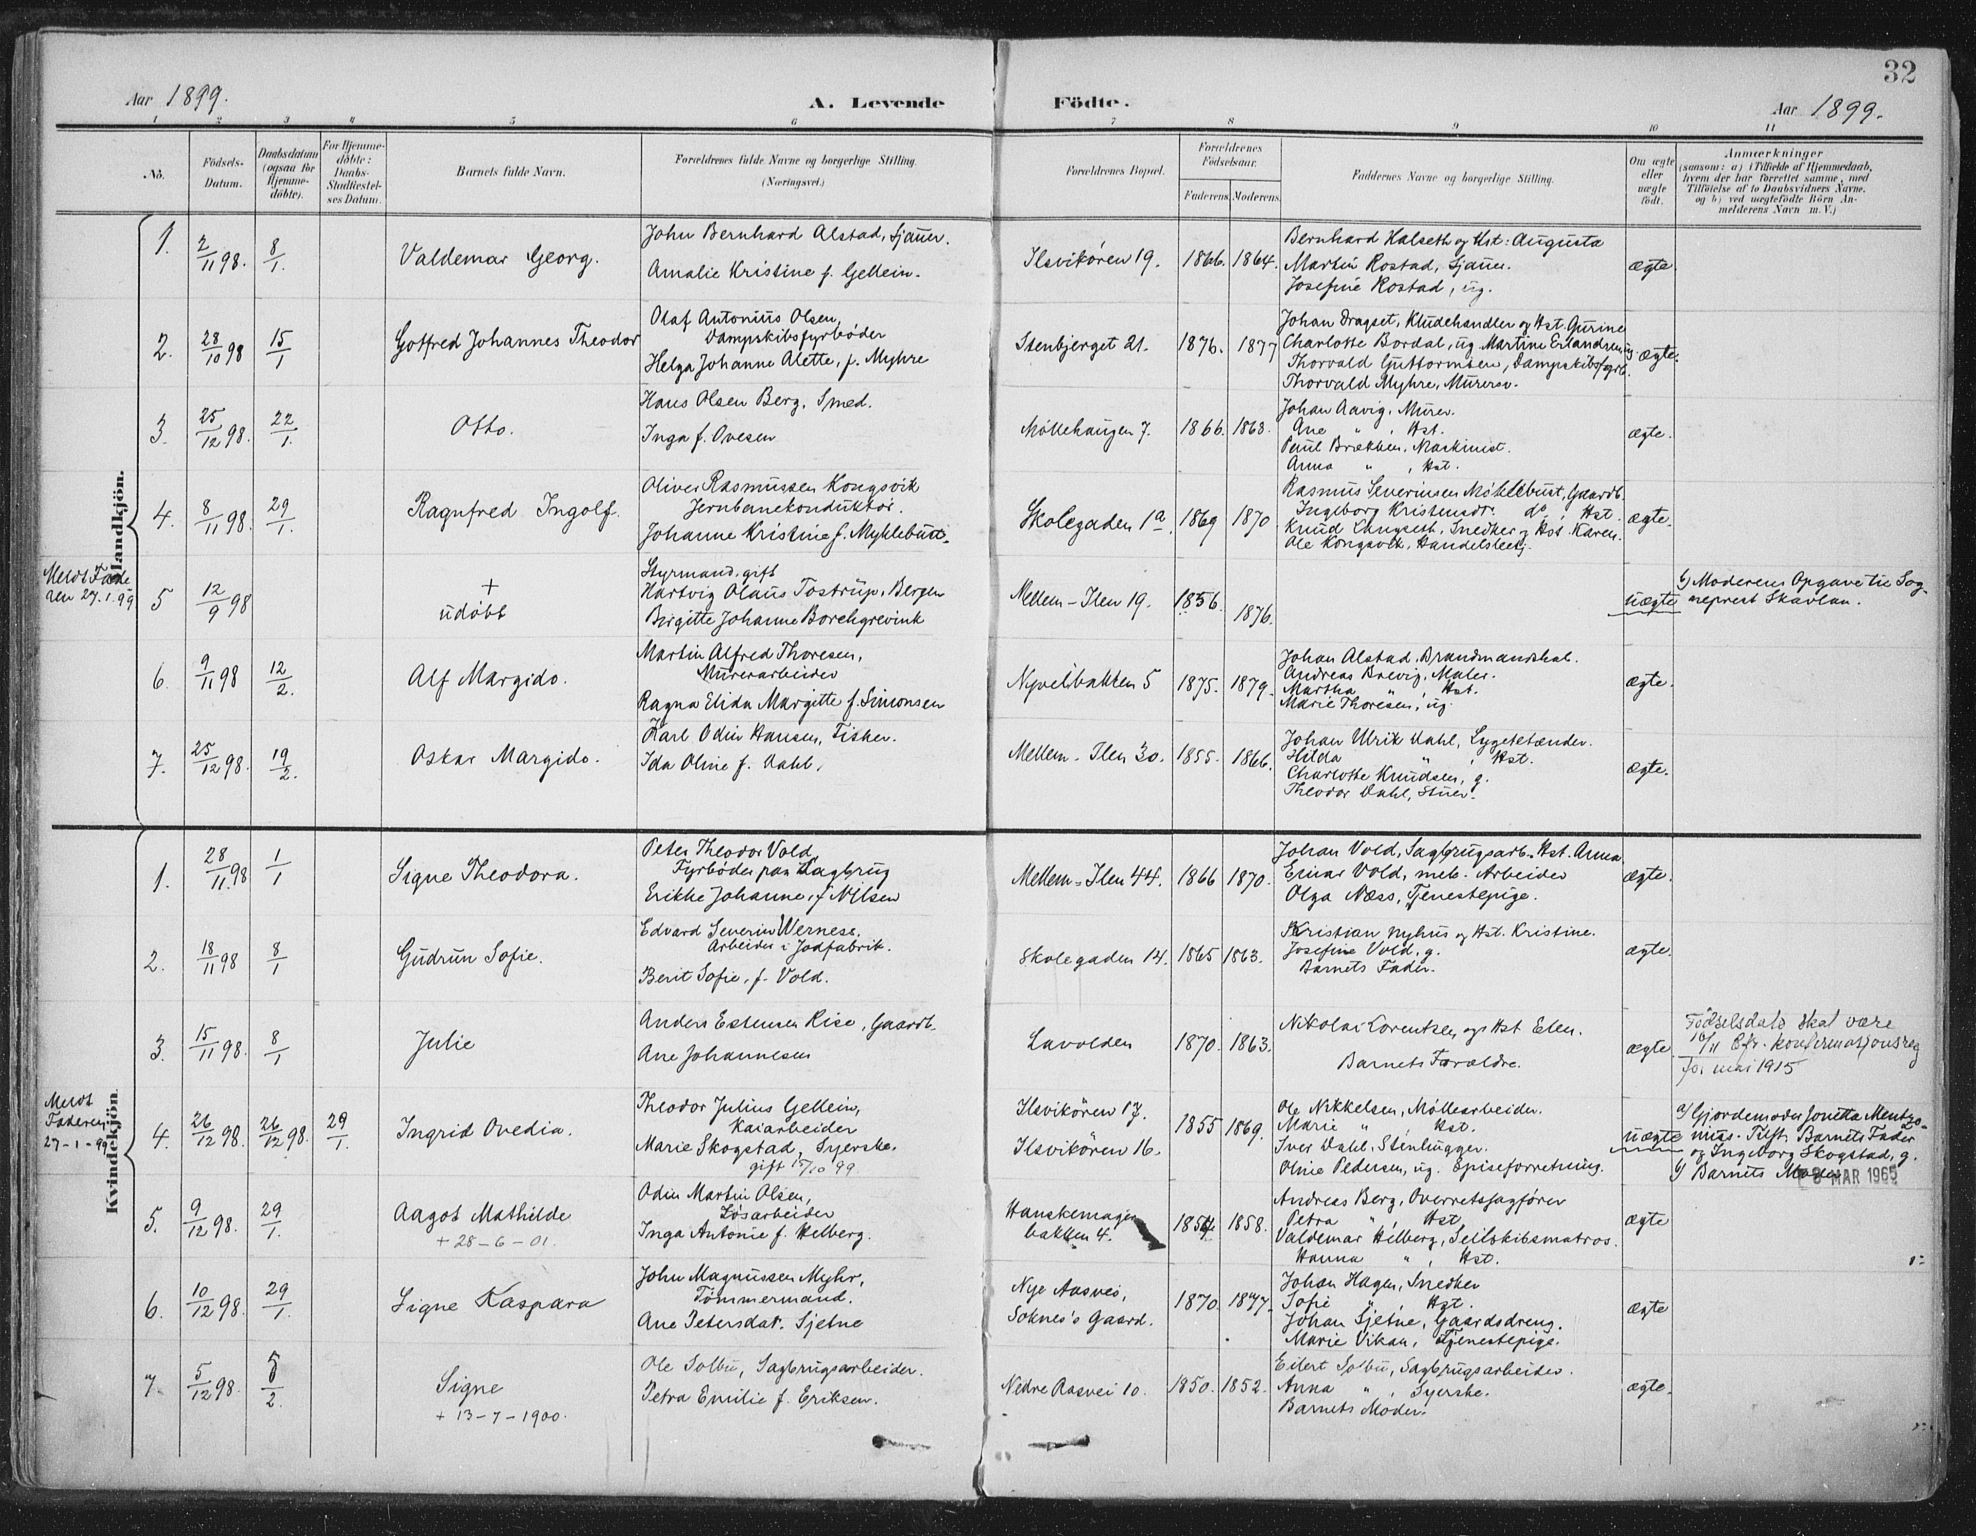 32
Aar 1899.
A. Levende Födte.
Aar 1899.
1 2 3 4 5 6 7 8 9 10 11
No.
Födsels-Datum.
Daabsdatum (ogsaa for Hjemme-döbte).
For Hjemme-döbte: Daabs-Stadfæstel-ses Datum.
Barnets fulde Navn.
Forældrenes fulde Navne og borgerlige Stilling.
(Næringsvei.)
Forældrenes Bopæl.
Forældrenes Födselsaar.
Faderens. Moderens.
Faddernes Navne og borgerlige Stilling.
Om ægte eller uægte födt.
Anmærkninger
(saasom: a) i Tilfælde af Hjemmedaab,
hvem der har forrettet samme, med
Tilföielse af to Daabsvidners Navne,
og b) ved uægtefödte Börn An-
melderens Navn m. V.)
Mandkjön.
1. 2/11 98. 8/1. Valdemar Georg.
John Bernhard Alstad, Sjauer.
Amalie Kristine f. Gellein.
Ilsvikören 19. 1866. 1864.
Bernhard Halseth og Hst: Augusta
Martin Rostad, Sjauer.
Josefine Rostad, ug.
ægte.
2. 28/10 98 15/1 Gotfred Johannes Theodor
Olaf Antonius Olsen,
Dampskibsfyrbøder
Helga Johanne Alette, f. Myhre
Stenbjerget 21. 1876. 1877
Johan Dragset, Kludehandler og Hst. Gurine
Charlotte Bordal, ug Martine Erlandsen ug
Thorvald Guttormsen, Dampskibsfyrb.
Thorvald Myhre, Murersv.
ægte.
3. 25/12 98. 22/1. Otto.
Hans Olsen Berg, Smed.
Inga f. Ovesen
Møllehaugen 7. 1866. 1863.
Johan Aavig, Murer.
Ane " , Hst.
Paul Brækken, Maskinist.
Anna " , Hst.
ægte.
4. 8/11 98. 29/1. Ragnfred Ingolf.
Oliver Rasmussen Kongsvik
Jernbanekonduktør.
Johanne Kristine f. Myklebust.
Skolegaden 1a. 1869 1870
Rasmus Severinsen Møklebust, Gaardb.
Ingeborg Kristensdr. do, Hst.
Knud Langseth, Snedker og Hst. Karen.
Ole Kongsvik, Handelsbetj.
ægte.
Meldt Fade
ren 27.1.99
5 12/9 98
+
udøbt
Styrmand, gift
Hartvig Olaus Tostrup, Bergen
Birgitte Johanne Borchgrevink
Mellem-Ilen 19. 1856. 1876.
uægte
b) Moderens Opgave til Sog-
neprest Skavlan.
6. 9/11 98 12/2. Alf Margido.
Martin Alfred Thoresen,
Murerarbeider
Ragna Elida Margitte f. Simonsen
Nyveibakken 5 1875. 1879.
Johan Alstad, Brandmandskab.
Andreas Brevig, Maler.
Martha " , Hst.
Marie Thoresen, ug.
ægte.
7. 25/12 98. 19/2. Oskar Margido.
Karl Odin Hansen, Fisker.
Ida Oline f. Dahl,
Mellem-Ilen 30. 1855. 1866.
Johan Ulrik Dahl, Lygtetænder.
Hilda " , Hst.
Charlotte Knudsen, g.
Theodor Dahl, Stuer.
ægte.
Kvindekjön
1. 28/11 98 1/1 Signe Theodora.
Peter Theodor Vold
Fyrbøder paa Sagbrug
Erikke Johanne, f. Nilsen
Mellem-Ilen 44. 1866 1870.
Johan Vold, Sagbrugsarb. Hst. Anna.
Einar Vold, mek. Arbeider
Olga Næss, Tjenestepige.
ægte.
2. 18/11 98 8/1 Gudrun Sofie.
Edvard Severin Werness.
Arbeider i Jodfabrik.
Berit Sofie, f. Vold.
Skolegaden 14. 1865 1863.
Kristian Nyhus og Hst. Kristine.
Josefine Vold, g.
Barnets Fader.
ægte.
3. 15/11 98. 8/1 Julie
Anders Estensen Rise, Gaardb.
Ane Johannesen
Lavolden 1870. 1863.
Nikolai Lorentsen, og Hst Elen.
Barnets Forældre.
ægte
Födselsdato skal være
16/11 Efr. konfirmasjonsreg
for mai 1915
Meldt
Faderen
27-1-99
4. 26/12 98. 26/12 98. 29/1. Ingrid Ovedia.
Theodor Julius Gellein,
Kaiarbeider
Marie Skogstad, Syerske.
gift 15/10 99.
Ilsvikören 17.
Ilsvikören 16.
1855 1869.
Ole Nikkelsen, Møllearbeider.
Marie " Hst.
Iver Dahl, Stenhugger.
Oline Pedersen, ug. Episeforretning.
uægte
a) Gjordemoder Jonetta Mentzo-
nius. Tilst. Barnets Fader
og Ingeborg Skogstad, g.
b) Barnets Moder
8 MAR 1965
5. 9/12 98. 29/1. Aagot Mathilde
+ 28-6-01.
Odin Martin Olsen,
Løsarbeider
Inga Antonie f. Hilberg.
Hanskemager
bakken 4.
1854 1858.
Andreas Berg, Overretssagfører
Petra " Hst
Valdemar Hilberg, Seilskibsmatros.
Hanna " , Hst.
ægte
6. 10/12 98. 29/1. Signe Kaspara
John Magnussen Myhr,
Tømmermand.
Ane Petersdat. Sjetne
Nye Aasvei,
Soknes's Gaard.
1870. 1877.
Johan Hagen, Snedker
Sofie " , Hst.
Johan Sjetne, Gaardsdreng.
Marie Vikan, Tjenestepige.
ægte
7. 5/12 98. 5/2. Signe
+ 13-7-1900.
Ole Solbu, Sagbrugsarbeider.
Petra Emilie f. Eriksen.
Nedre Aasvei 10. 1850. 1852.
Eilert Solbu, Sagbrugsarbeider
Anna " , Syerske.
Barnets Moder.
ægte.